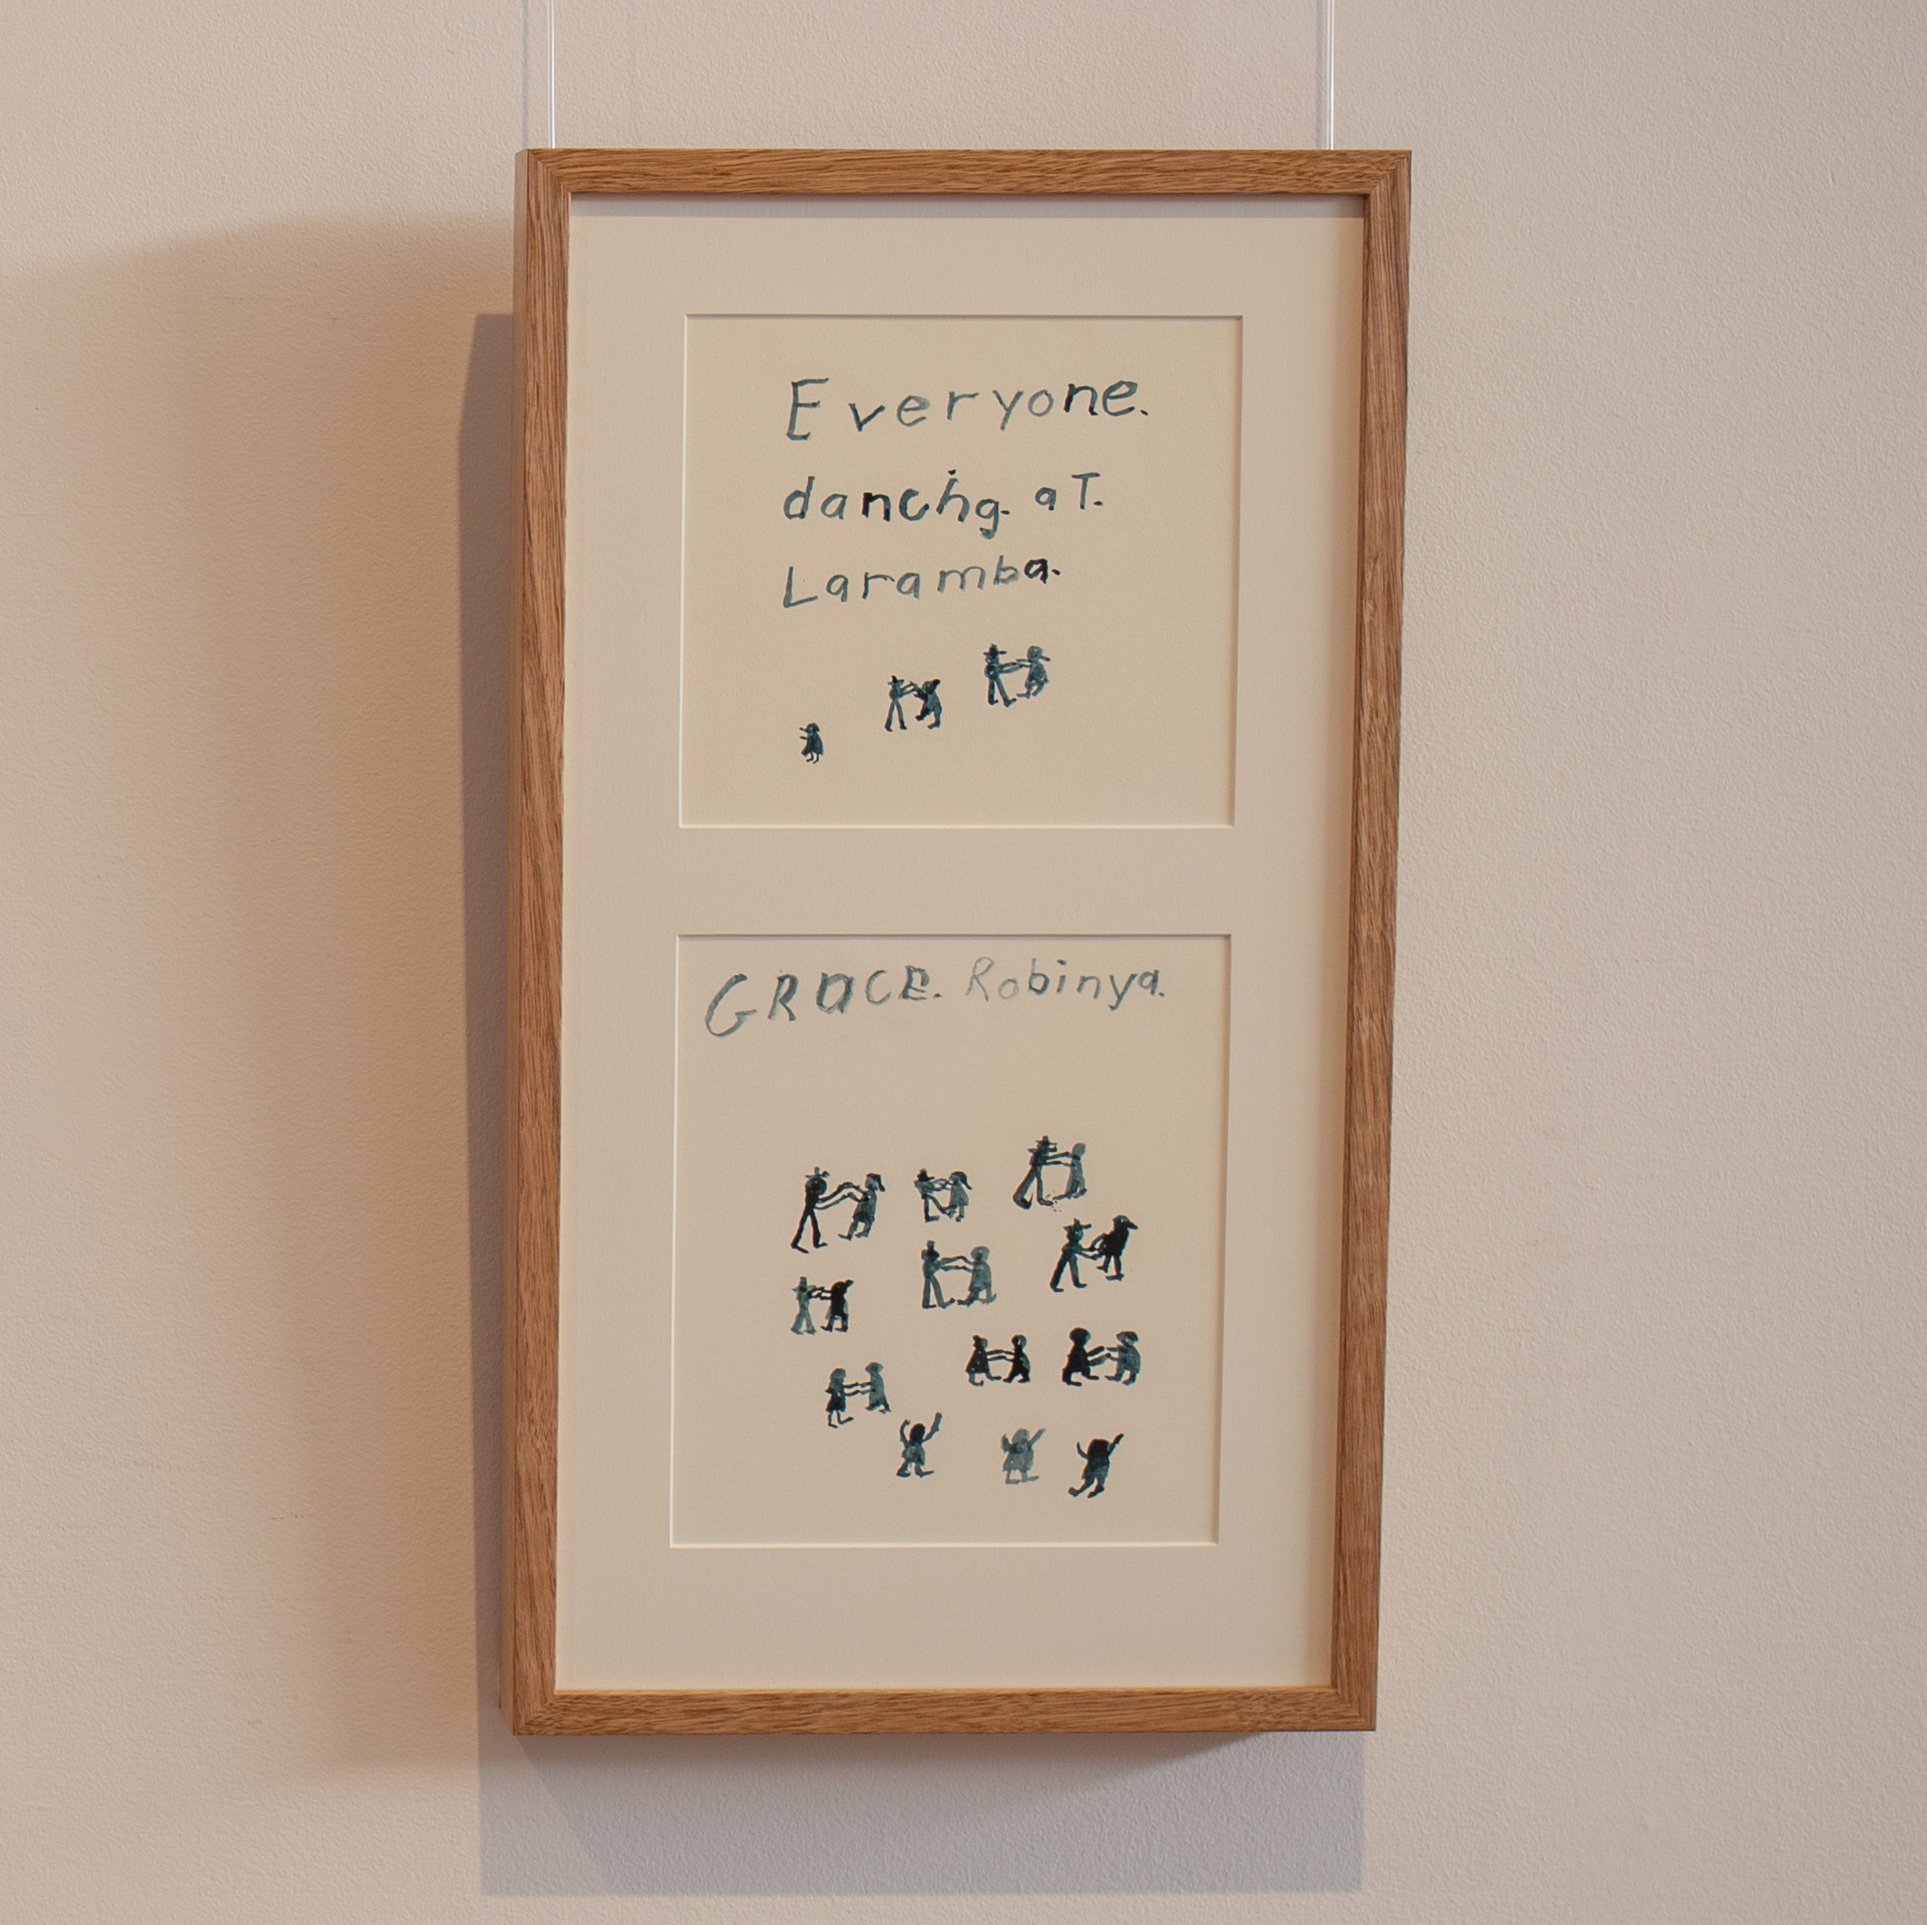 Everyone.
dancing. aT.
Laramba.
GRaCE. Robinya.